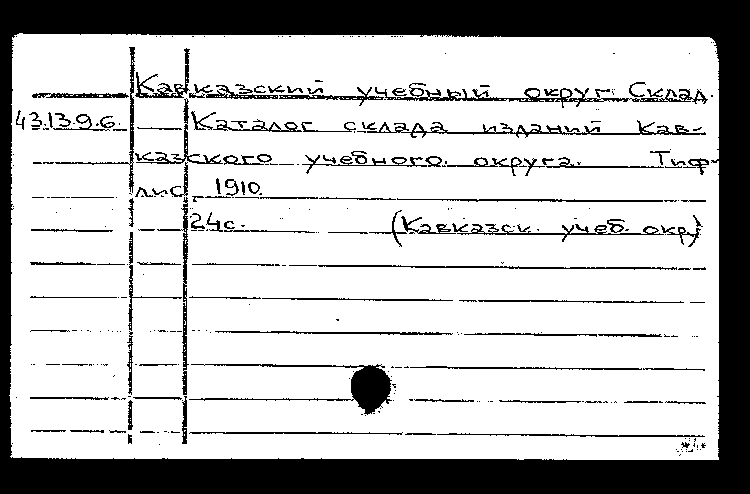 Кавказский учебный округ. Склад.
43.13.9.6. Каталог склада изданий Кав-
казского учебного округа. Тиф-
лис, 1910.
24с. (Кавказск. учеб. окр.)